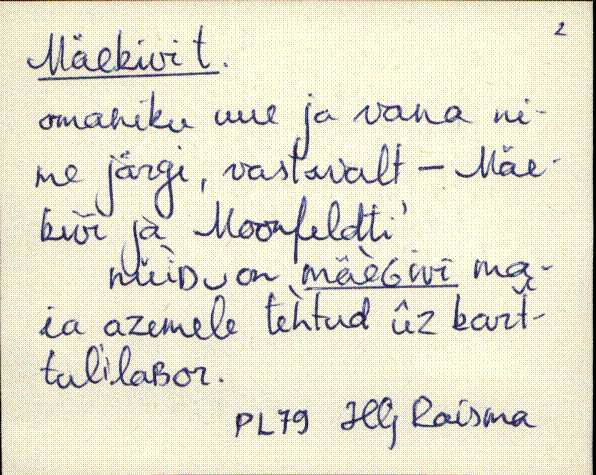 2
Mäekivi t.
omaniku uue ja vana ni-
me järgi, vastavalt – Mäe-
kivi ja Moonfeldti
nüiD on mäeGivi ma-
ia azemele tehtud üz kart-
tulilaBor.
PL79 HG Raisma